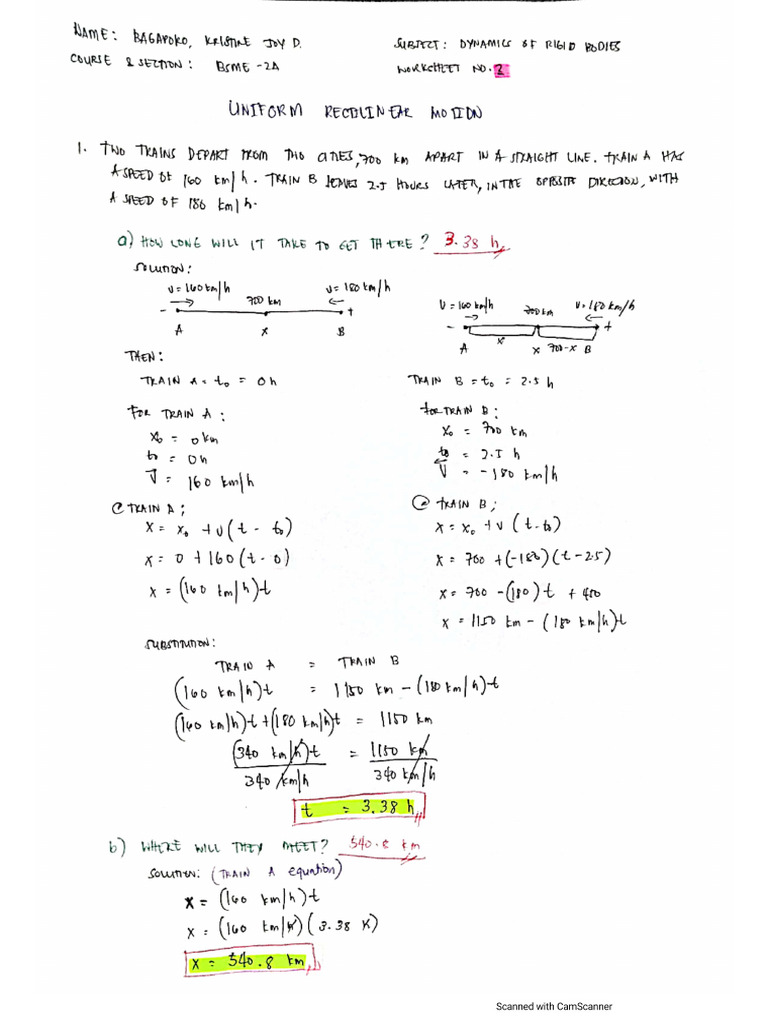 NAME: BAGAPORO, KRISTINE JOY D.
SUBJECT: DYNAMICS OF RIGID BODIES
COURSE & SECTION: BSME-2A
WORKSHEET NO. 2
UNIFORM RECTILINEAR MOTION
1. TWO TRAINS DEPART FROM TWO CITIES, 700 km APART IN A STRAIGHT LINE. TRAIN A HAS
A SPEED OF 160 km/h. TRAIN B LEAVES 2.5 HOURS LATER, IN THE OPPOSITE DIRECTION, WITH
A SPEED OF 180 km/h.
a) HOW LONG WILL IT TAKE TO GET THERE? 3.38 h
SOLUTION:
V = 160 km/h 700 km V = 180 km/h
- +
A X B
V = 160 km/h 700 km V = 180 km/h
- +
A X X 700-X B
THEN:
TRAIN A = t₀ = 0 h
TRAIN B = t₀ = 2.5 h
FOR TRAIN A:
X₀ = 0 km
t₀ = 0 h
V = 160 km/h
FOR TRAIN B:
X₀ = 700 km
t₀ = 2.5 h
V = -180 km/h
@ TRAIN A;
X = X₀ + V(t - t₀)
X = 0 + 160(t - 0)
X = (160 km/h)t
@ TRAIN B;
X = X₀ + V(t - t₀)
X = 700 + (-180)(t - 2.5)
X = 700 - (180)t + 450
X = 1150 km - (180 km/h)t
SUBSTITUTION:
TRAIN A = TRAIN B
(160 km/h)t = 1150 km - (180 km/h)t
(160 km/h)t + (180 km/h)t = 1150 km
(340 km/h)t = 1150 km
340 km/h 340 km/h
t = 3.38 h
b) WHERE WILL THEY MEET? 540.8 km
SOLUTION: (TRAIN A equation)
X = (160 km/h)t
X = (160 km/h)(3.38 h)
X = 540.8 km
Scanned with CamScanner